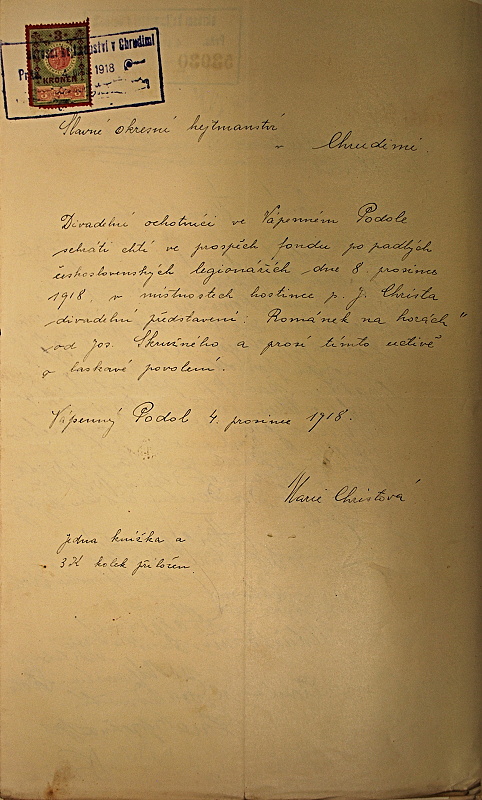 3
KRONEN
v Chrudimi
1918
Slavné okresní hejtmanství
v Chrudimi.
Divadelní ochotníci ve Vápenném Podole
sehráti chtí ve prospěch fondu po padlých
československých legionářích dne 8. prosince
1918. v místnostech hostince p. J. Christa
divadelní představení: Románek na horách"
od Jos. Skružného a prosí tímto uctivě
o laskavé povolení.
Vápenný Podol 4. prosince 1918.
Marie Christová
Jedna knížka a
3 K kolek přiložen.